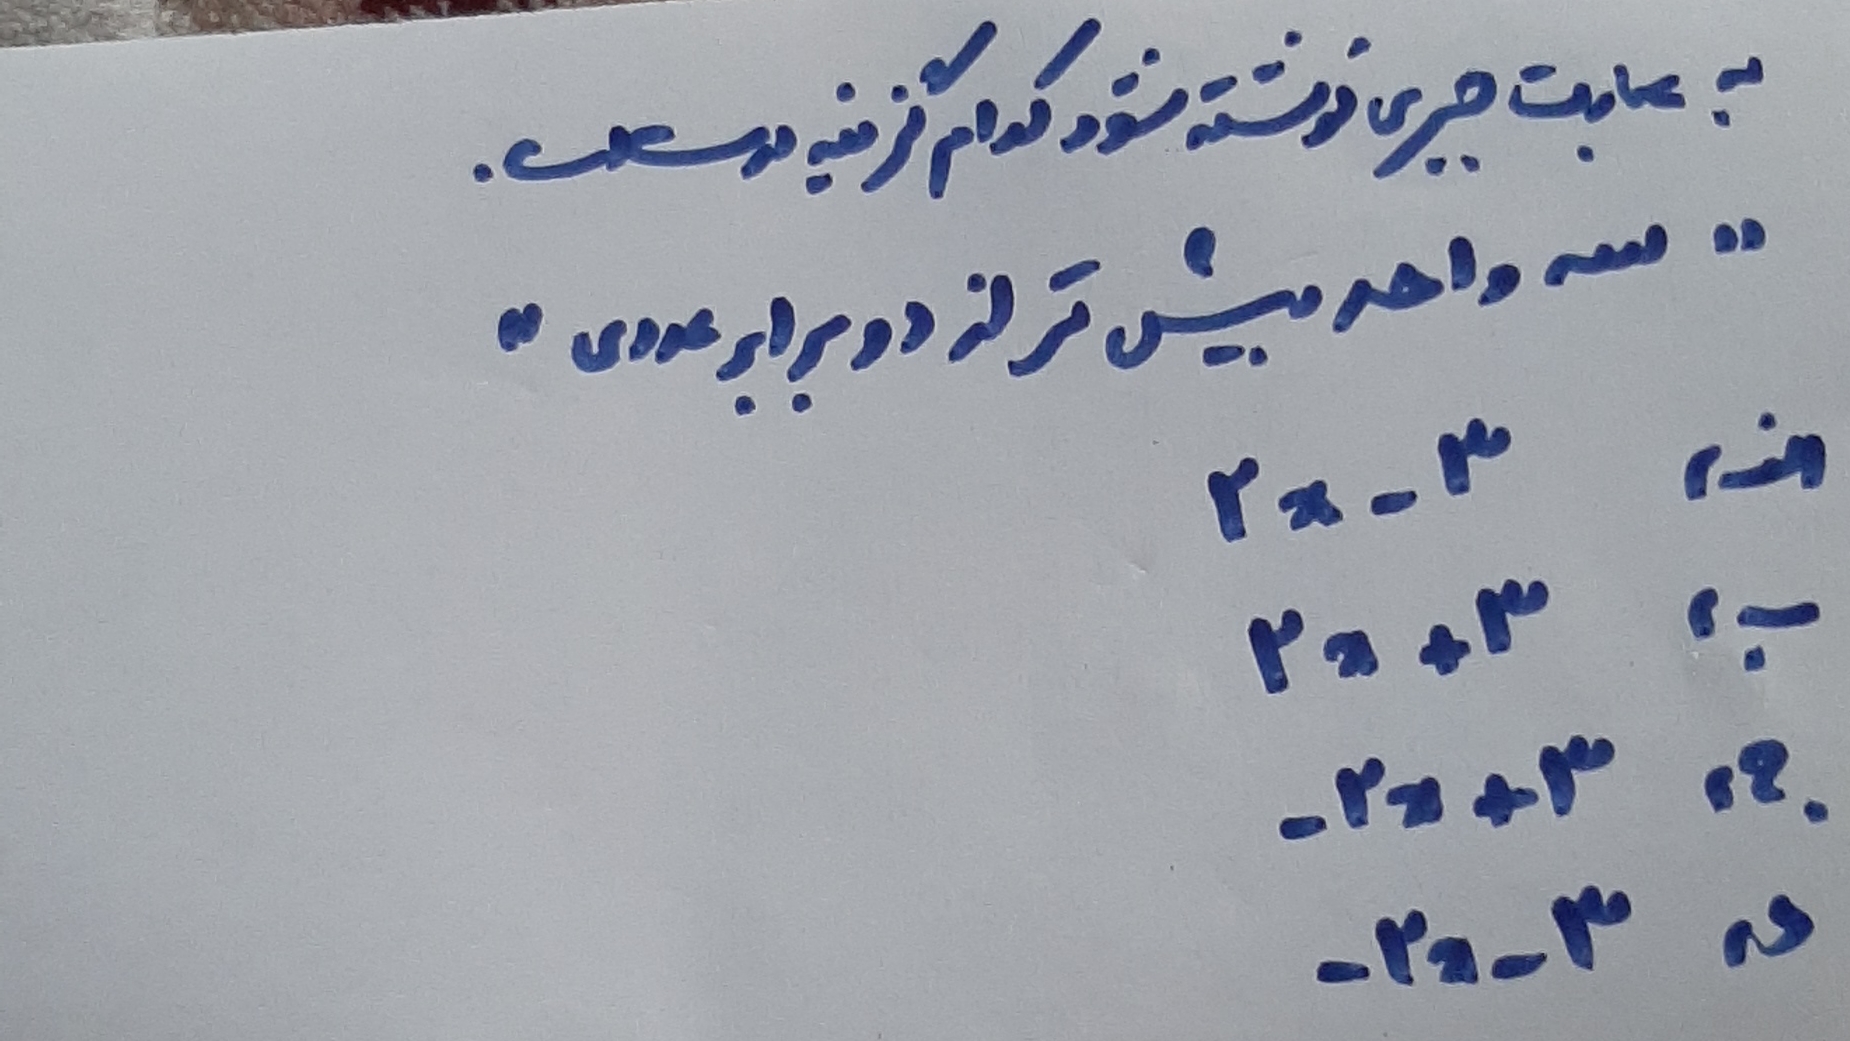 به عبارت جبری نوشته شود کدام گزینه درست است.
" سه واحد بیش تر از دو برابر عددی "
الف) ۲x - ۳
ب) ۲x + ۳
ج) -۲x + ۳
د) -۲x - ۳